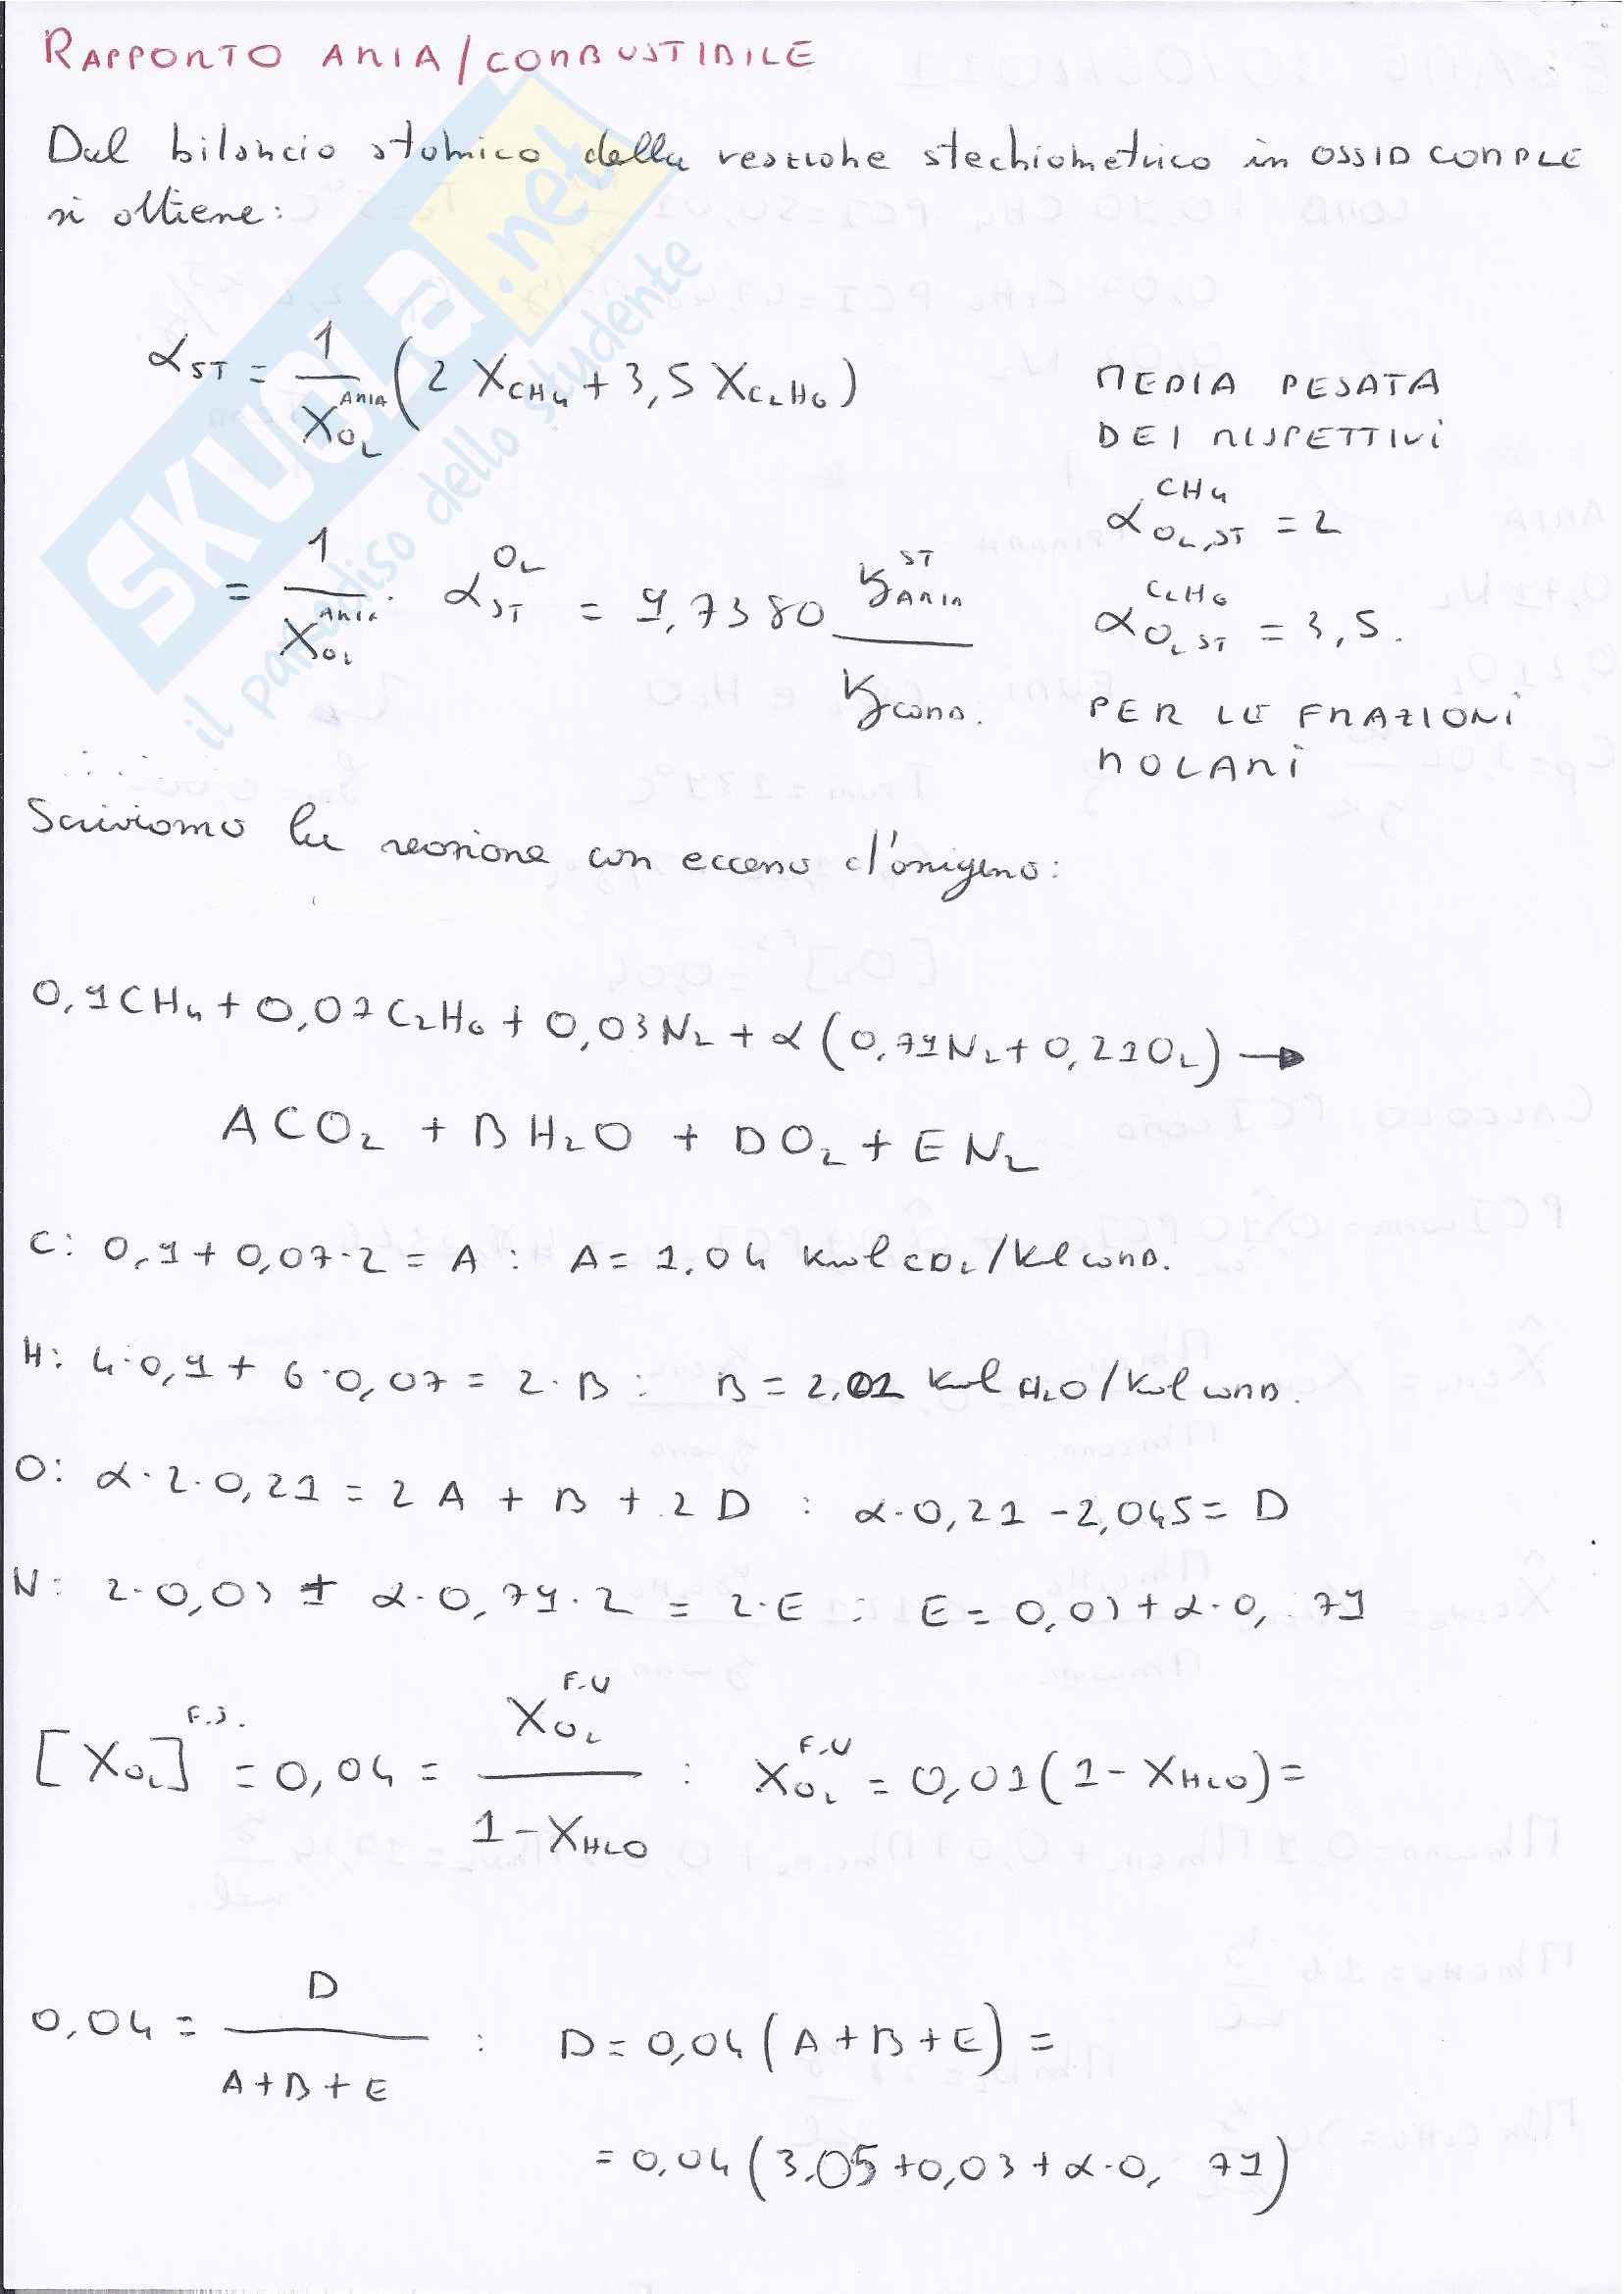 RAPPORTO ARIA/COMBUSTIBILE
Dal bilancio atomico della reazione stechiometrica in OSSID COMPLE
si ottiene:
α_ST = 1/X_O2^ARIA (2 X_CH4 + 3,5 X_C2H6)
MEDIA PESATA
DEI RISPETTIVI
α_O2,ST^CH4 = 2
= 1/X_O2^ARIA · α_ST^O2 = 9,7380 kg_ARIA^ST / kg_COMB.
α_O2,ST^C2H6 = 3,5.
PER LE FRAZIONI
MOLARI
Scriviamo la reazione con eccesso d'ossigeno:
0,9CH4 + 0,07C2H6 + 0,03N2 + α(0,79N2 + 0,21O2) →
ACO2 + BH2O + DO2 + EN2
C: 0,9 + 0,07·2 = A : A = 1,04 kmol CO2/kl COMB.
H: 4·0,9 + 6·0,07 = 2·B : B = 2,01 kmol H2O/kmol COMB.
O: α·2·0,21 = 2A + B + 2D : α·0,21 - 2,045 = D
N: 2·0,03 + α·0,79·2 = 2·E : E = 0,03 + α·0,79
[X_O2]^F.S. = 0,04 = X_O2^F.U / 1-X_H2O : X_O2^F.U = 0,01(1-X_H2O) =
0,04 = D / A+B+E : D = 0,04(A+B+E) =
= 0,04(3,05 + 0,03 + α·0,79)
SKUOLA.net
il paradiso dello studente